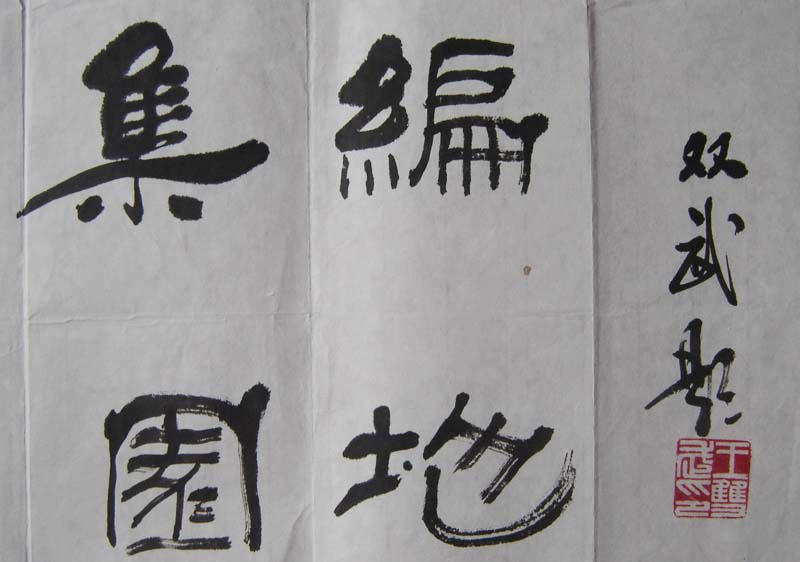 集編
園地
双武题
王雙武印